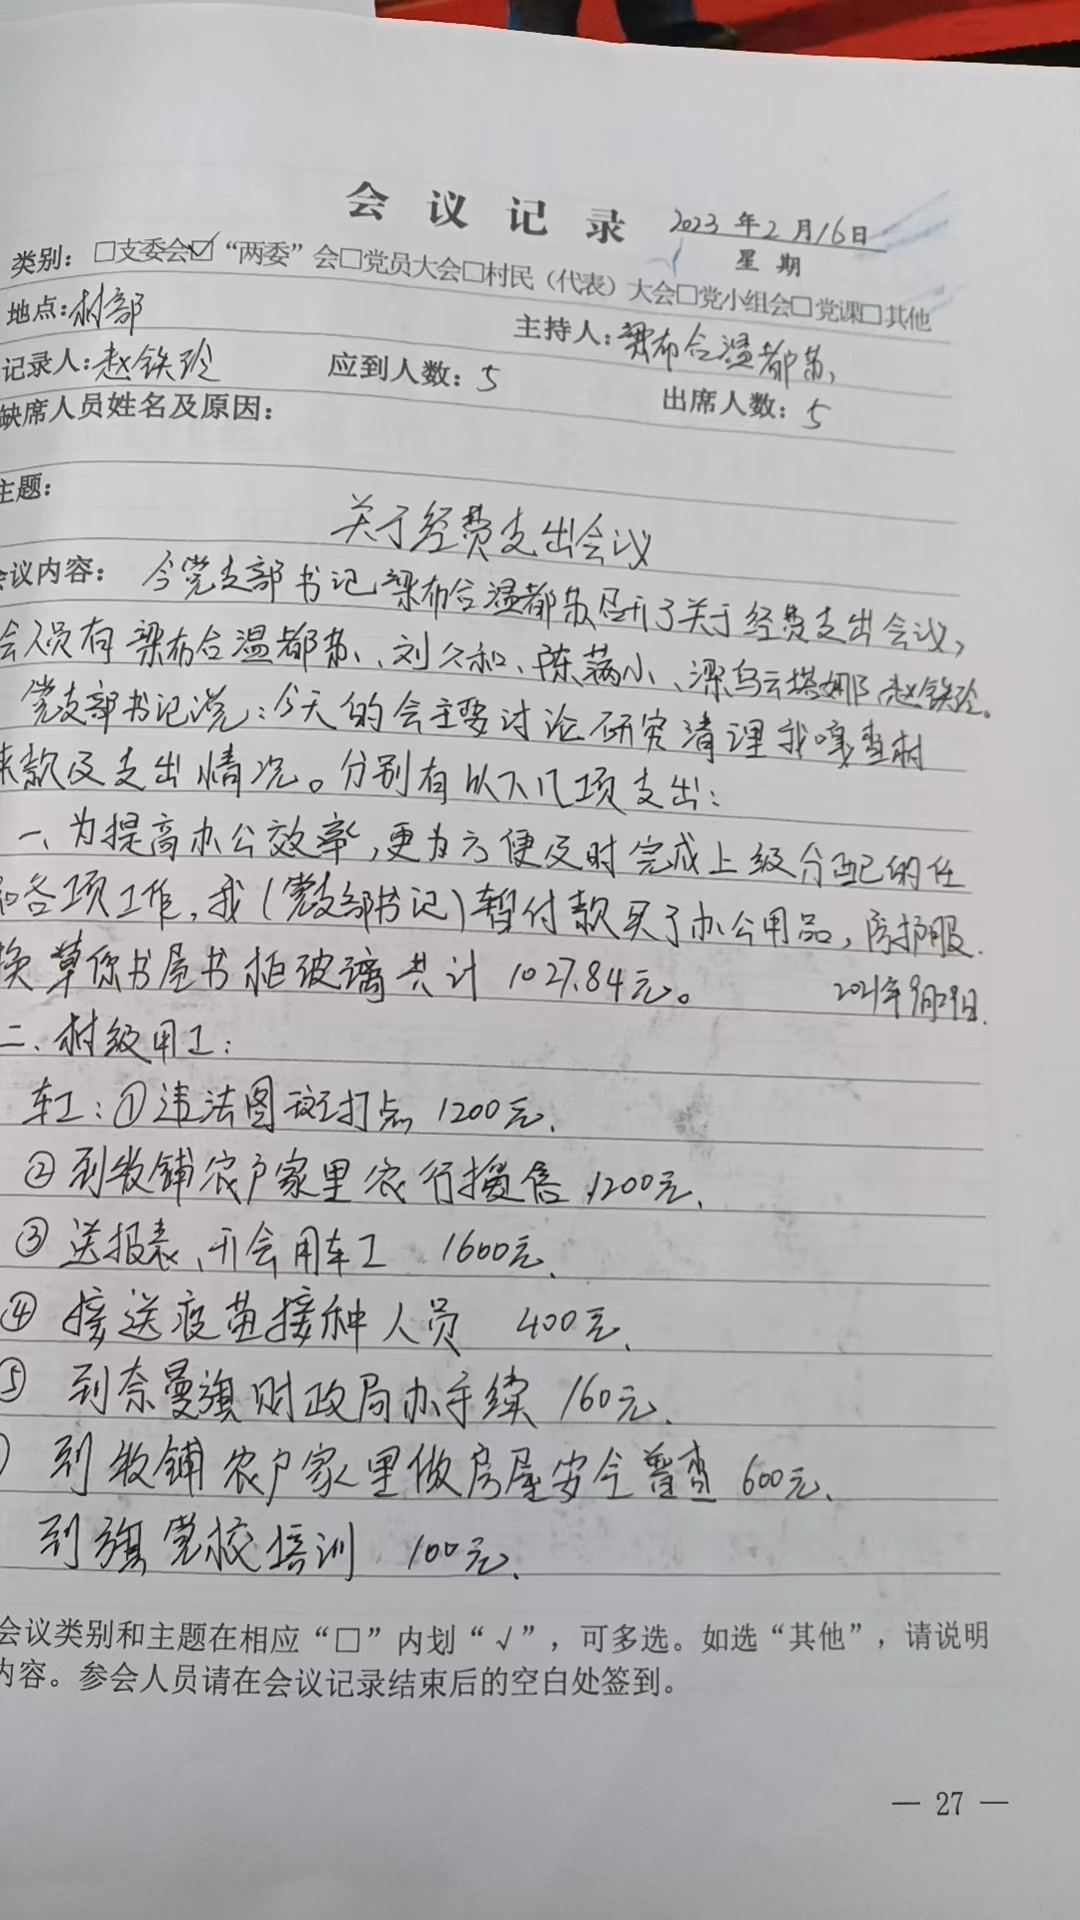 会议记录 2023年2月16日
星期
类别：□支委会☑“两委”会□党员大会□村民（代表）大会□党小组会□党课□其他
地点：村部 主持人：梁布合温都苏
记录人：赵铁玲 应到人数：5 出席人数：5
缺席人员姓名及原因：
主题：
关于经费支出会议
会议内容： 今党支部书记梁布合温都苏召开了关于经费支出会议，
会人员有梁布合温都苏、刘久和、陈满小、梁乌云塔娜、赵铁玲。
党支部书记说：今天的会主要讨论研究清理我嘎查村
来款及支出情况。分别有以下几项支出：
一、为提高办公效率，更为方便及时完成上级分配的任
和各项工作，我（党支部书记）暂付款买了办公用品，防护服
换草原书屋书柜玻璃共计1027.84元。 2021年9月29日.
二、村级用工：
车工：①违法图斑打点1200元.
②到牧铺农户家里农行授信1200元.
③送报表、开会用车工 1600元.
④接送疫苗接种人员 400元.
⑤ 到奈曼旗财政局办手续 160元.
到牧铺农户家里做房屋安全普查 600元.
到旗党校培训 100元.
会议类别和主题在相应“□”内划“√”，可多选。如选“其他”，请说明
内容。参会人员请在会议记录结束后的空白处签到。
— 27 —